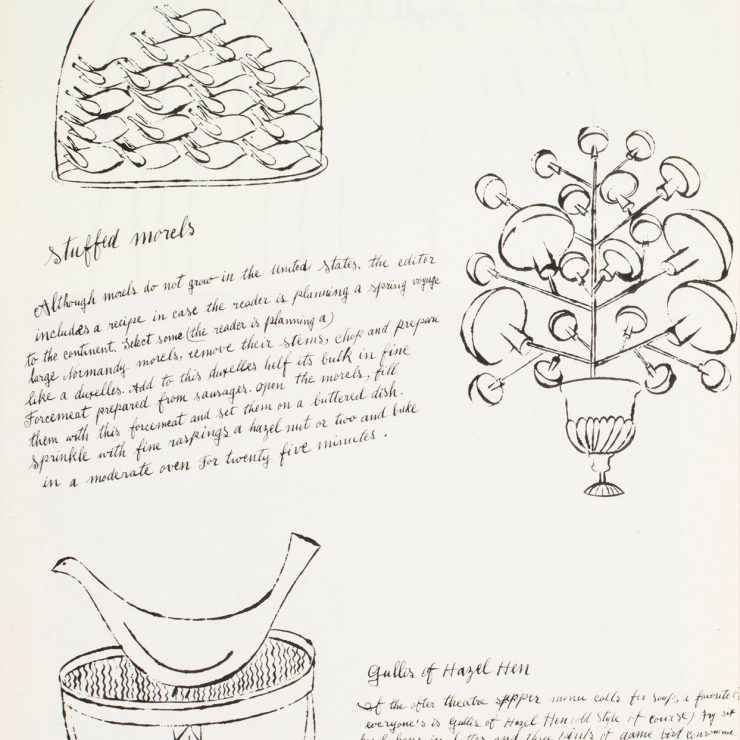 Stuffed morels
Although morels do not grow in the United States, the editor
includes a recipe in case the reader is planning a spring voyage
to the continent. Select some (the reader is planning a)
large Normandy morels, remove their stems, chop and prepare
like a duxelles. Add to this duxelles helf its bulk in fine
Forcemeat prepared from sausages. Open the morels, fill
them with this forcemeat and set them on a buttered dish.
Sprinkle with fine raspings a hazel nut or two and bake
in a moderate oven For twenty five minutes.
Gullis of Hazel Hen
If the after theatre supper menu calls for soup, a favorite
everyone's is Gullis of Hazel Hen (old style of course)
in butter and three pints of game bird consomme